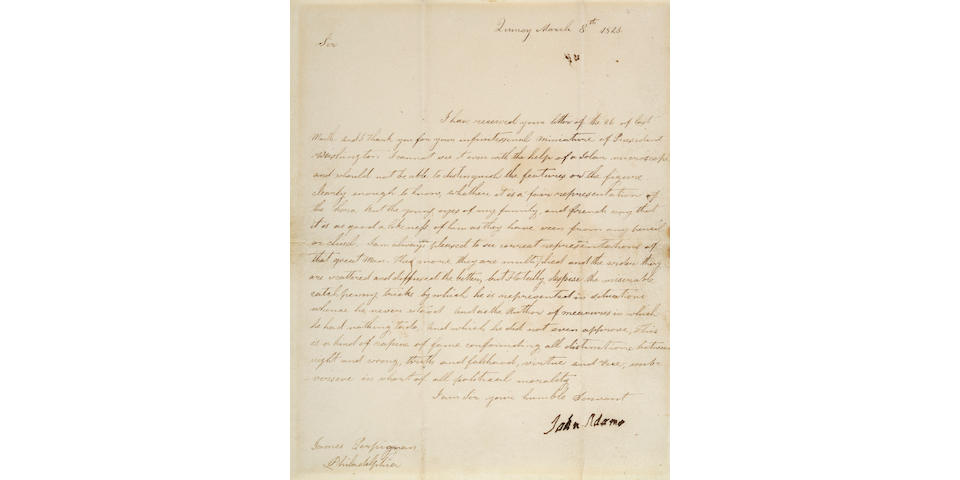 Quincy March 8th 1823
Sir
I have received your letter of the 26 of last
Month and I thank you for your infinitessimal miniature of President
Washington. I cannot see it even with the help of a Solar microscope
and should not be able to distinguish the features or the figure
clearly enough to know, whether it is a fair representation of
the hero. But the young eyes of my family, and friends say that
it is as good a likeness of him as they have seen from any pencil
or chisel. I am always pleased to see correct representations of
that great Man. The more they are multiplied and the wider they
are scattered and diffused the better, but I totally despise the miserable
catch penny tricks by which he is represented in situations
where he never stood and as the Author of measures in which
he had nothing to do, and which he did not even approve, This
is a kind of rapine of fame confounding all distinctions between
right and wrong, truth and falshood, virtue and vice, sub-
versive in short of all political morality
I am Sir your humble Servant
John Adams
James Perpignan
Philadelphia